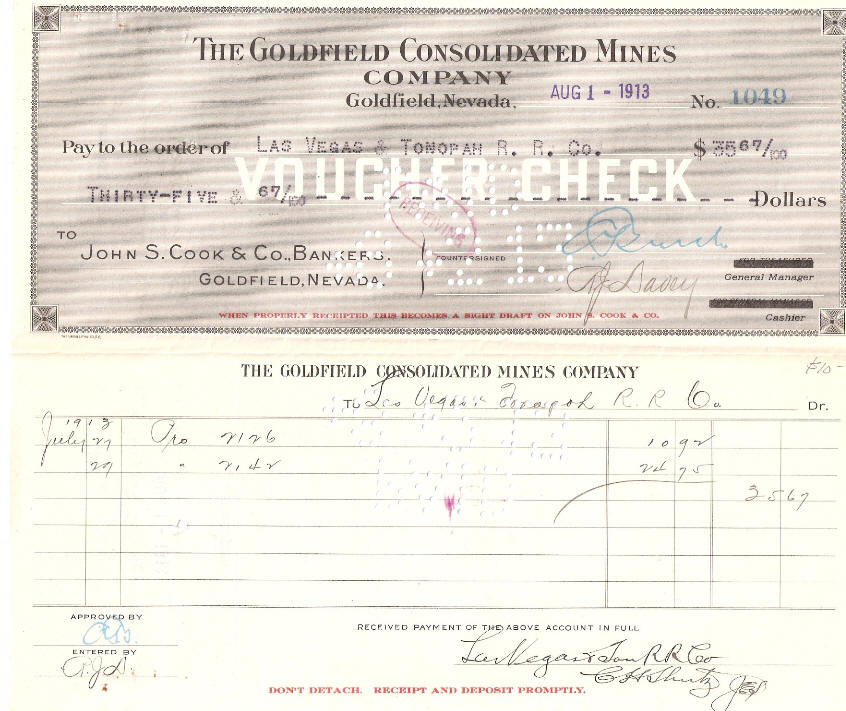 THE GOLDFIELD CONSOLIDATED MINES
COMPANY
Goldfield, Nevada, AUG 1 - 1913 No. 1049
Pay to the order of LAS VEGAS & TONOPAH R. R. CO. $ 35 67/100
VOUCHER CHECK
THIRTY-FIVE & 67/100 Dollars
RECEIVING
TO
JOHN S. COOK & CO., BANKERS.
GOLDFIELD, NEVADA.
COUNTERSIGNED
General Manager
Cashier
WHEN PROPERLY RECEIPTED THIS BECOMES A SIGHT DRAFT ON JOHN S. COOK & CO.
THE GOLDFIELD CONSOLIDATED MINES COMPANY
To Las Vegas & Tonopah R. R. Co Dr.
1913
July 27 Pro 2126 10 92
27 " 2142 24 75
35 67
APPROVED BY
RECEIVED PAYMENT OF THE ABOVE ACCOUNT IN FULL
ENTERED BY
Las Vegas & Ton R R Co
DON'T DETACH. RECEIPT AND DEPOSIT PROMPTLY.